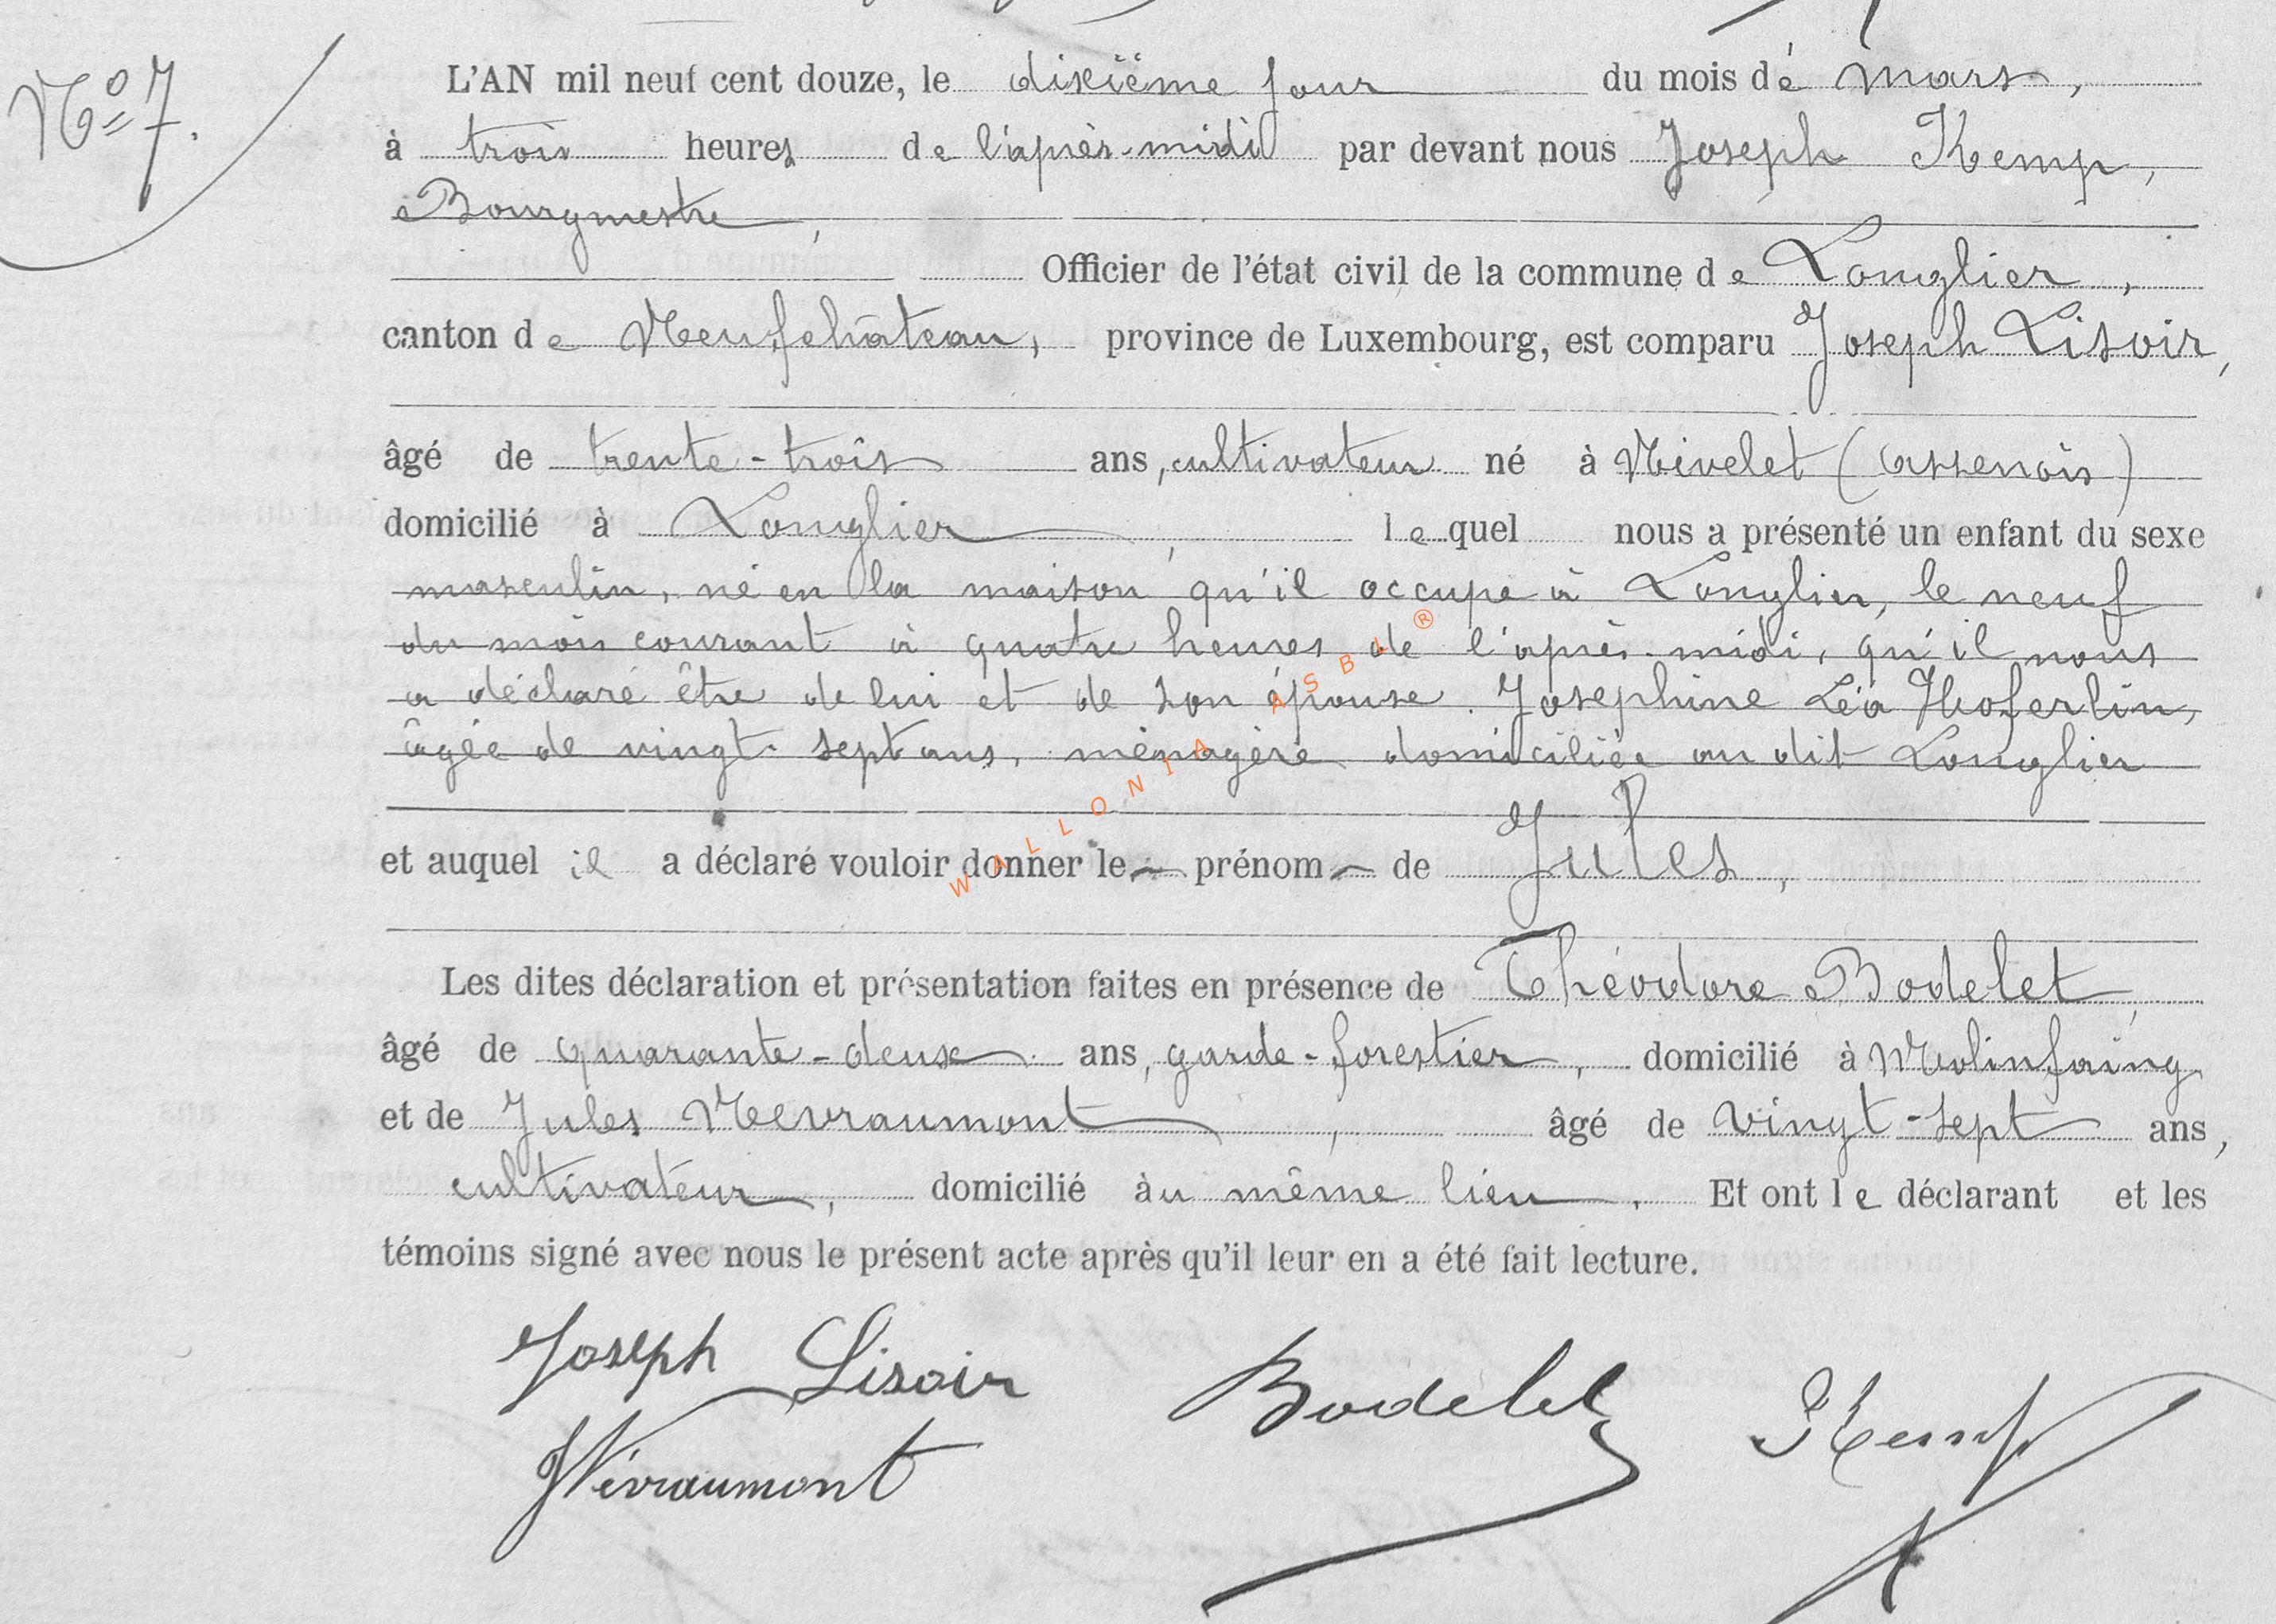 N° 7.
L'AN mil neuf cent douze, le dixième jour du mois de mars,
à trois heures de l'après-midi par devant nous Joseph Kemp,
Bourgmestre,
Officier de l'état civil de la commune de Longlier,
canton de Neufchâteau, province de Luxembourg, est comparu Joseph Lisoir,
âgé de trente-trois ans, cultivateur né à Nivelet (Assenois)
domicilié à Longlier, lequel nous a présenté un enfant du sexe
masculin, né en la maison qu'il occupe à Longlier, le neuf
du mois courant à quatre heures de l'après-midi, qu'il nous
a déclaré être de lui et de son épouse Josephine Léa Hoferlin,
âgée de vingt-sept ans, ménagère domiciliée au dit Longlier
et auquel il a déclaré vouloir donner le prénom de Jules,
Les dites déclaration et présentation faites en présence de Théodore Bodelet,
âgé de quarante-deux ans, garde-forestier, domicilié à Molinfaing
et de Jules Nevraumont, âgé de vingt-sept ans,
cultivateur, domicilié au même lieu. Et ont le déclarant et les
témoins signé avec nous le présent acte après qu'il leur en a été fait lecture.
Joseph Lisoir Bodelet J Kemp
J Névraumont
WALLONIA ASBL ®